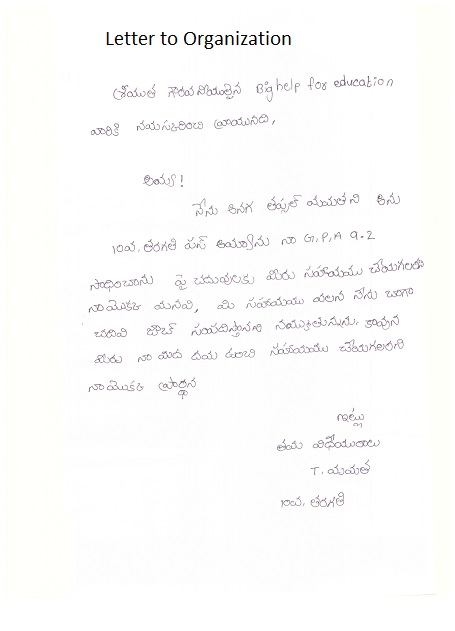 Letter to Organization
శ్రీయుత గౌరవనీయులైన Big help for education
వారికి నమస్కరించి వ్రాయునది,
అయ్యా!
నేను అనగ తప్సల్ మమతని నేను
10వ. తరగతి పస్ అయ్యాను నా G.P.A 9.2
సాధించాను పై చదువులకు మీరు సహాయము చేయగలరు
నా యొకటి మనవి, మి సహాయము వలన నేను బాగా
చదివి జాబ్ సంపదిస్తానని నమ్ముతున్నును. కావున
మీరు నా మీద దయ ఉంచి సహాయము చేయగలరని
నా యొకటి ప్రార్థన
ఇట్లు
తమ విధేయురాలు
T. మమత
10వ. తరగతి